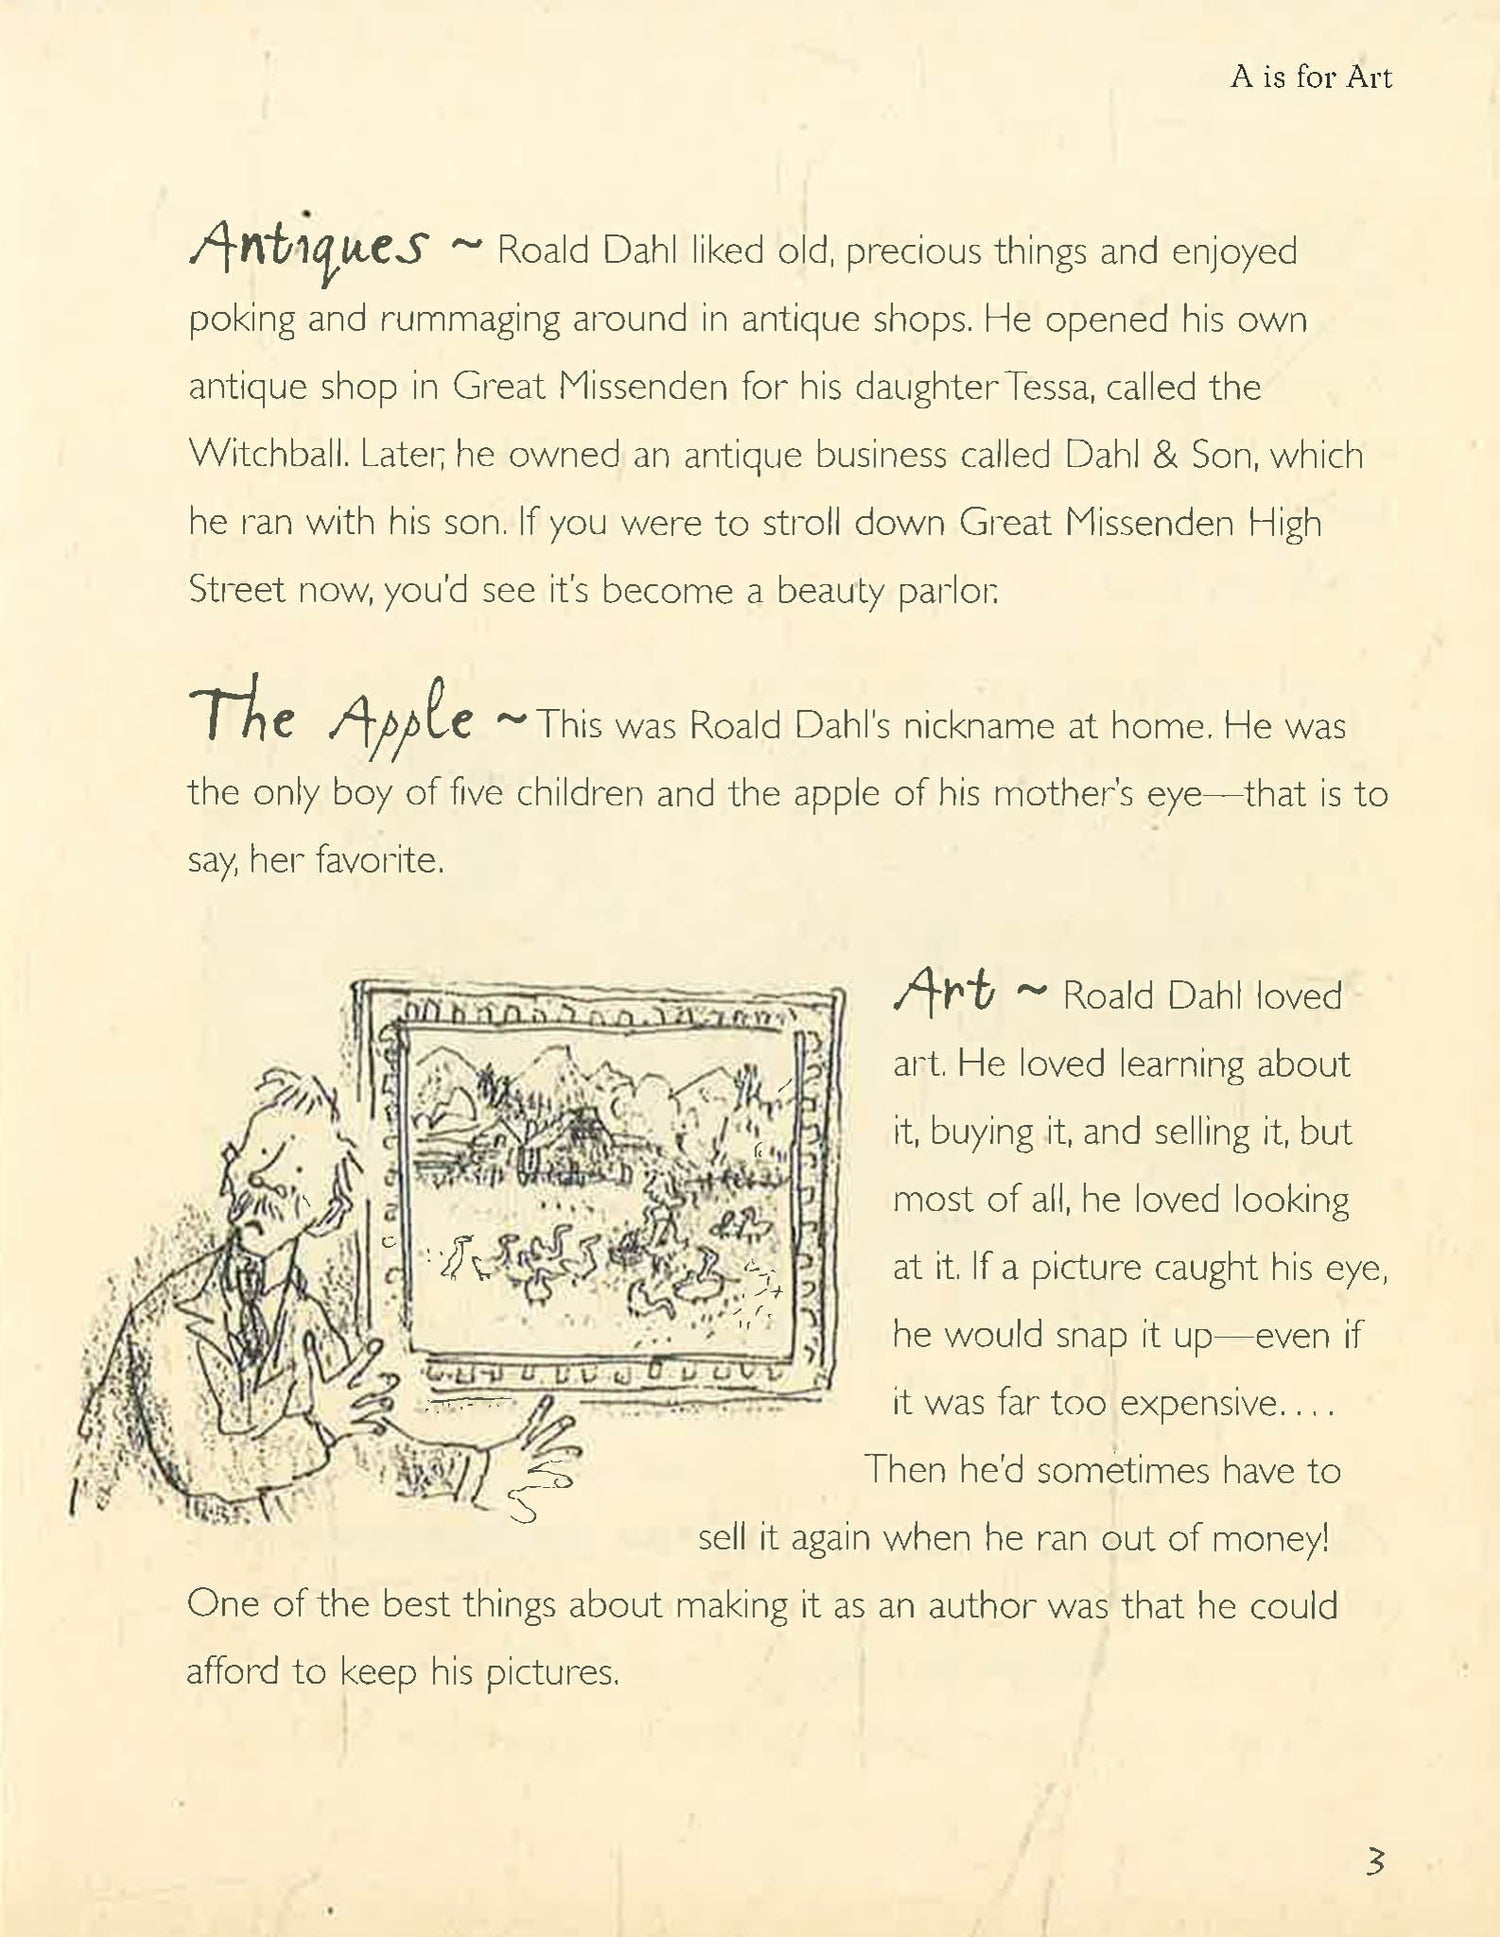 A is for Art
Antiques ~ Roald Dahl liked old, precious things and enjoyed
poking and rummaging around in antique shops. He opened his own
antique shop in Great Missenden for his daughter Tessa, called the
Witchball. Later, he owned an antique business called Dahl & Son, which
he ran with his son. If you were to stroll down Great Missenden High
Street now, you'd see it's become a beauty parlor.
The Apple ~ This was Roald Dahl's nickname at home. He was
the only boy of five children and the apple of his mother's eye—that is to
say, her favorite.
Art ~ Roald Dahl loved
art. He loved learning about
it, buying it, and selling it, but
most of all, he loved looking
at it. If a picture caught his eye,
he would snap it up—even if
it was far too expensive. . . .
Then he'd sometimes have to
sell it again when he ran out of money!
One of the best things about making it as an author was that he could
afford to keep his pictures.
3